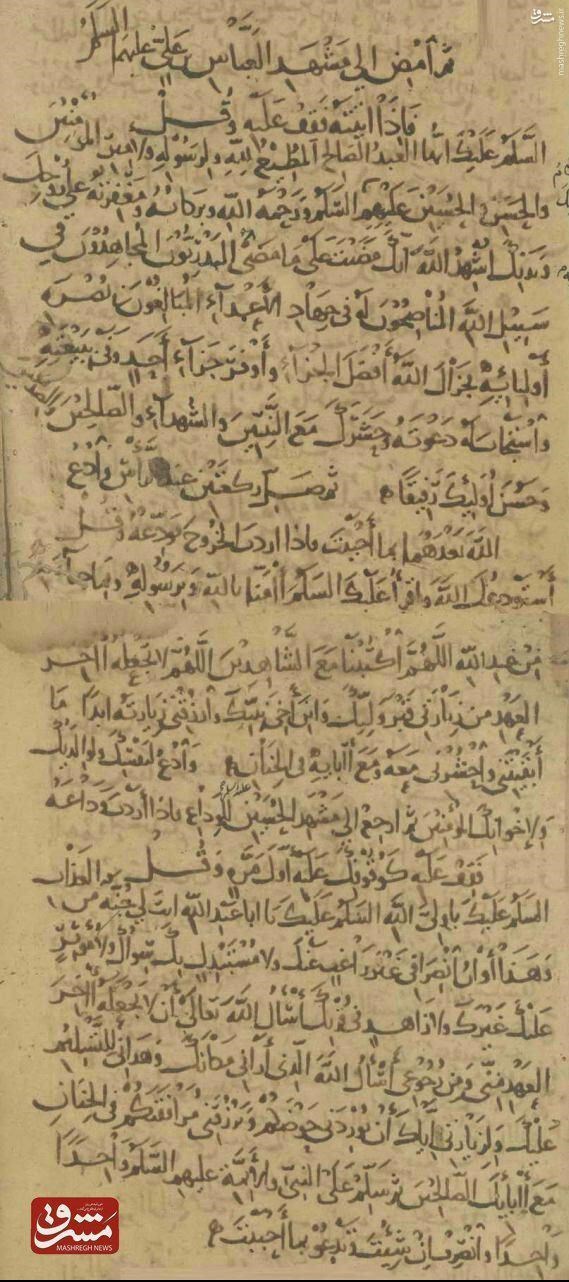 ثم امض الى مشهد العباس بن علي عليهم السلم
فاذا اتيته فقف عليه وقل
السلم عليك ايها العبد الصالح المطيع لله ولرسوله ولامير المؤمنين
والحسن والحسين عليهم السلم ورحمة الله وبركاته ومغفرته على روحك
وبدنك اشهد الله انك مضيت على ما مضى البدريون المجاهدون في
سبيل الله المناصحون له في جهاد الأعداء المبالغون في نصرة
أوليائه فجزاك الله أفضل الجزاء وأوفر جزاء أحد وفى ببيعته
واستجاب له دعوته وحشرك مع النبيين والشهداء والصالحين
وحسن أولئك رفيقا ثم صل ركعتين عند الرأس وادع
الله بعدهما بما أحببت فاذا اردت الخروج فودعه وقل
أستودعك الله واقرأ عليك السلم آمنا بالله وبرسوله وبما جاء به
من عند الله اللهم اكتبنا مع الشاهدين اللهم لا تجعله آخر
العهد من زيارتي قبر وليك وابن أخي نبيك وارزقني زيارته ابدا ما
أبقيتني واحشرني معه ومع آبائه في الجنان وادع لنفسك ولوالديك
ولاخوانك المؤمنين ثم ارجع الى مشهد الحسين عليه السلام للوداع فاذا أردت وداعه
فقف عليه كوقوفك عليه أول مرة وقل
السلم عليك يا ولي الله السلم عليك يا ابا عبد الله انت لي جنة من العذاب
وهذا أوان انصرافي غير راغب عنك ولا مستبدل بك سواك ولا مؤثر
عليك غيرك ولا زاهد في قربك أسأل الله تعالى أن لا يجعله آخر
العهد مني ومن رجوعي أسأل الله الذي أراني مكانك وهداني للتسليم
عليك ولزيارتي إياك أن يوردني حوضكم ويرزقني مرافقتكم في الجنان
مع آبائك الصالحين ثم سلم على النبي والأئمة عليهم السلم واحدا
واحدا وانصرف ان شئت وتدعو بما أحببت
مشرق
MASHREGH NEWS
mashreghnews.ir